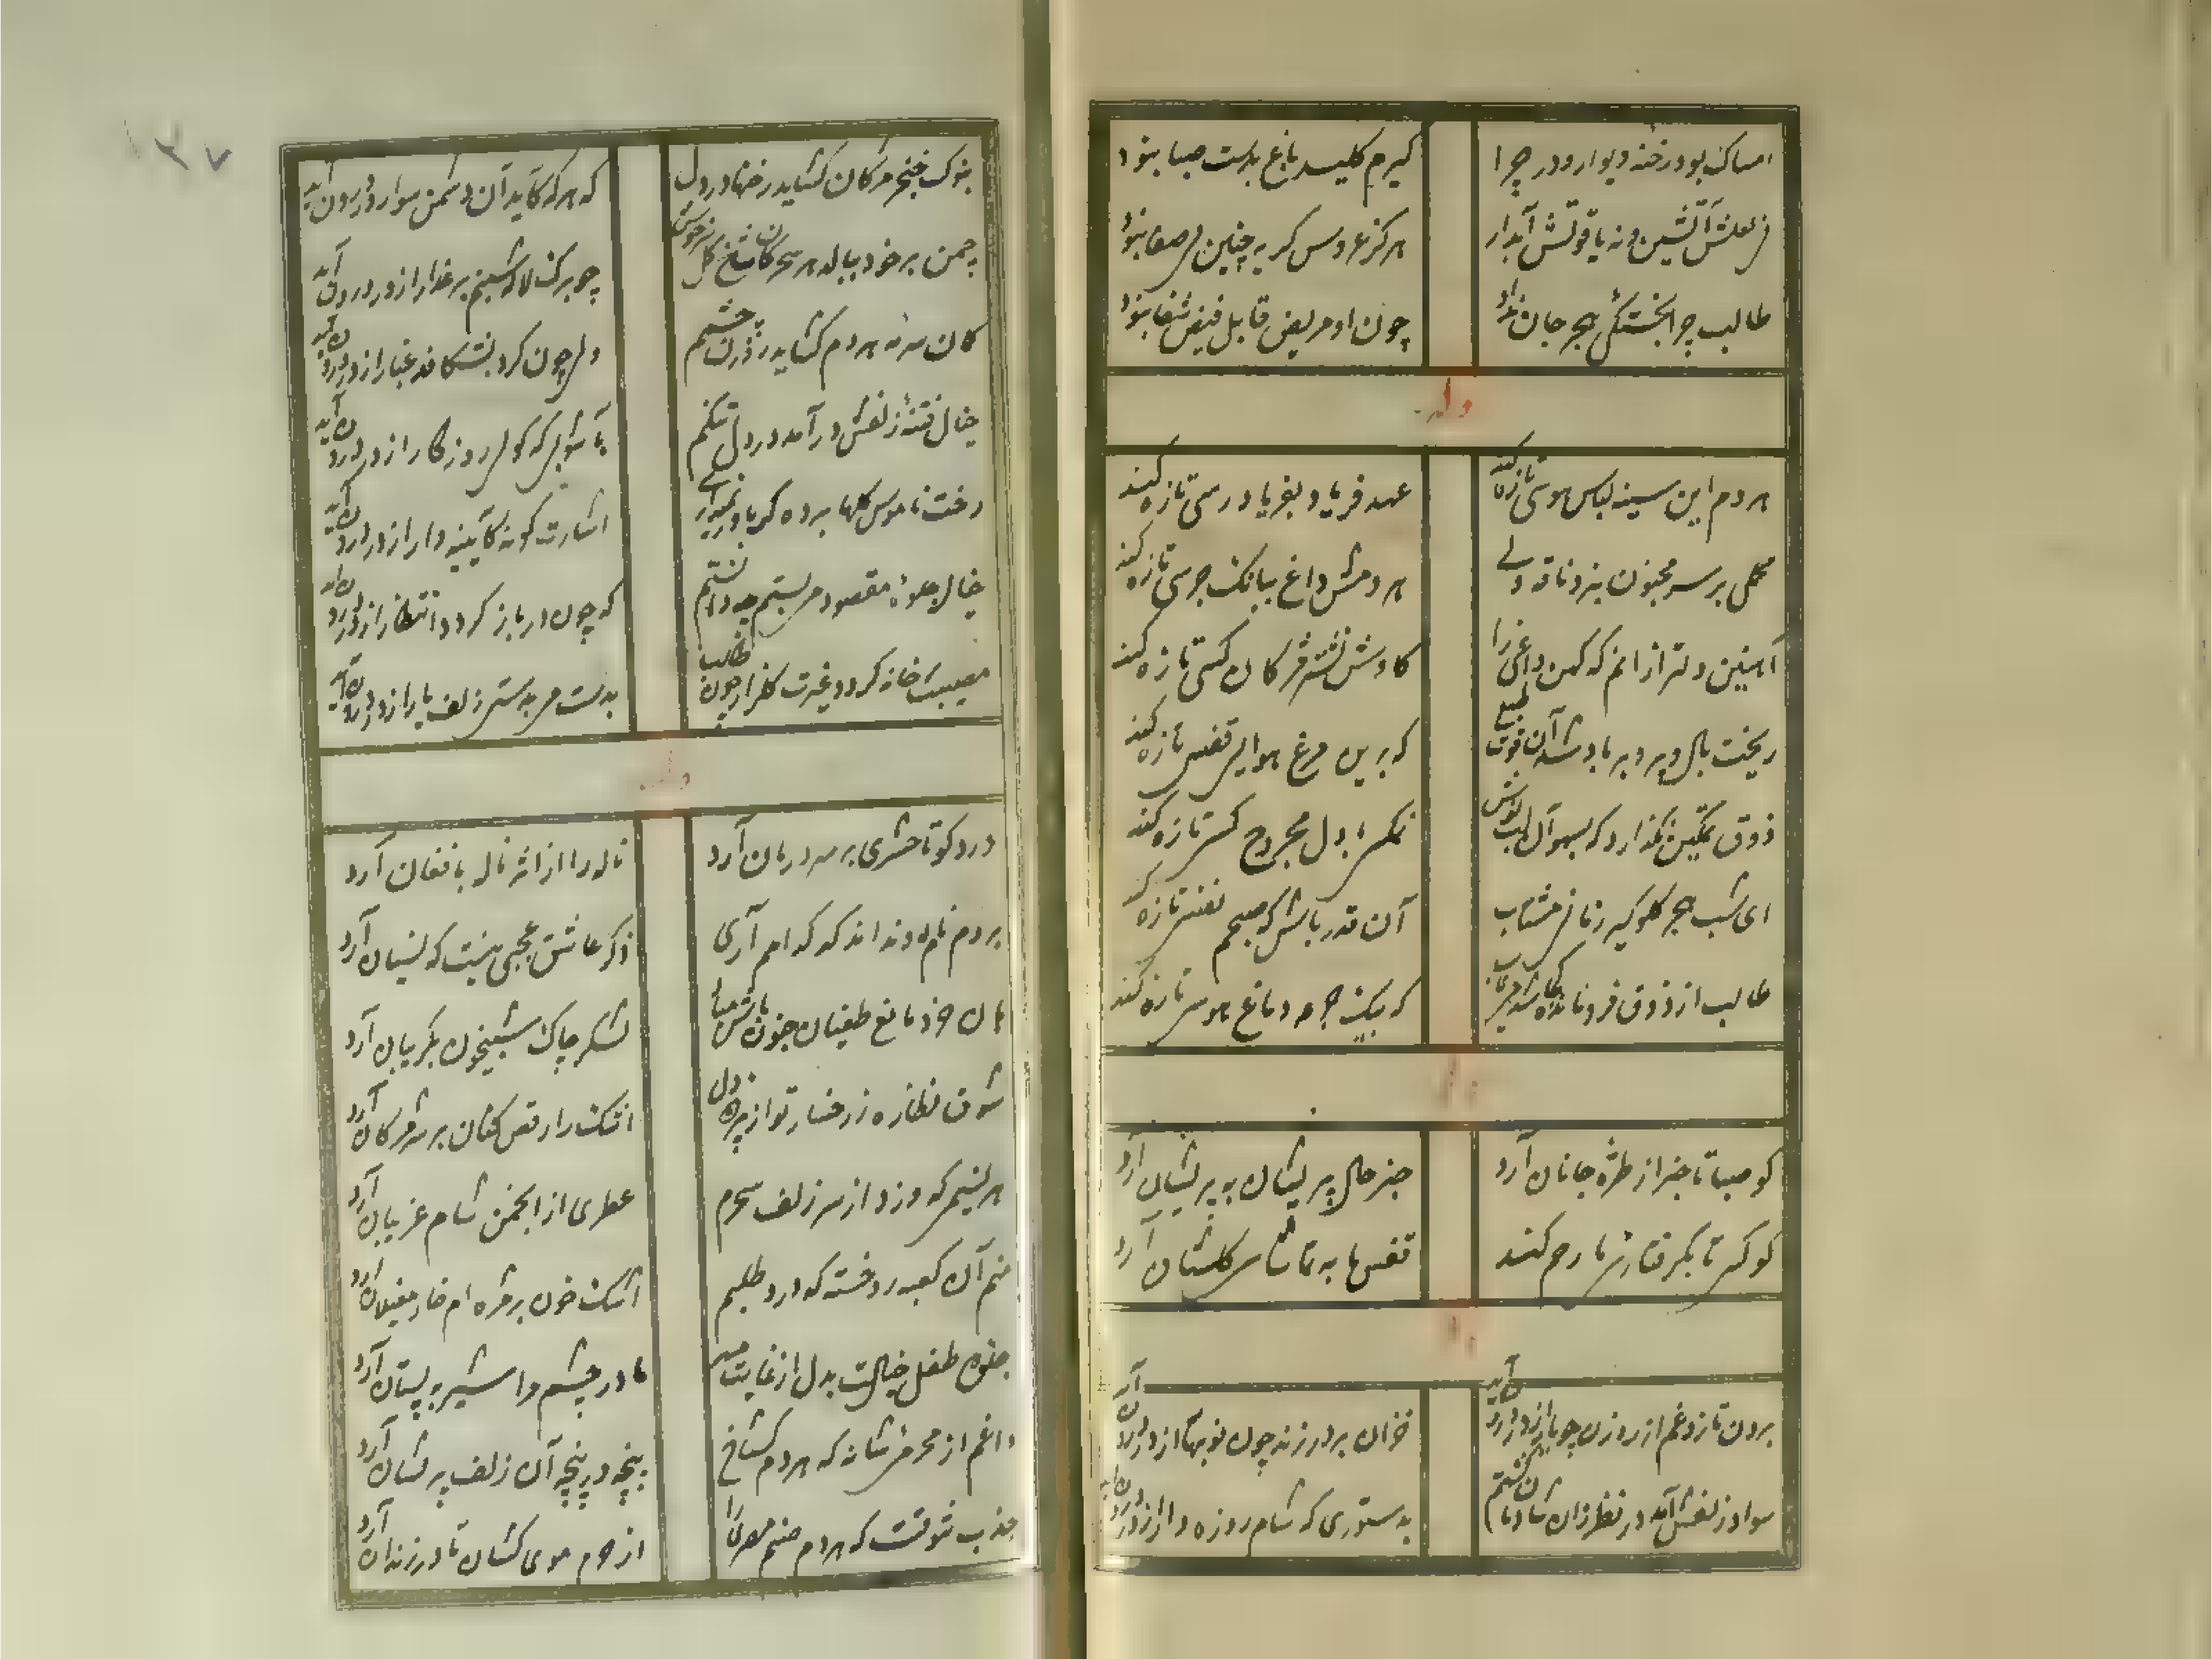 امساک بود رخنه دیوار و در چرا
گیرم کلید باغ بدست صبا نبود
نی لعلش آتشین و نه یاقوتش آبدار
هرگز عروس گریه چنین بی صفا نبود
طالب چرا بخستگی هجر جان نداد
چون او مریض قابل فیض شفا نبود
وله
هر دم این سینه لباس هوسی تازه کند
عهد فریاد بفریادرسی تازه کند
محمل بر سر مجنون نزد ناقه ولی
هر دمش داغ ببانگ جرسی تازه کند
آهنین دلتر از انم که کهن داغی را
کاوش نشتر مژگان کسی تازه کند
ریخت بال و پر و بر باد شد آن
که برین مرغ هوای قفسی تازه کند
ذوق نگذارد که بسهو آن لب
نمکی با دل مجروح کسی تازه کند
ای شب هجر گلوگیر زمانی مشتاب
آن قدر باش که صبحم نفسی تازه کند
طالب از ذوق فرو مانده
که بیک جرعه دماغ هوسی تازه کند
کو صبا تا خبر از طره جانان آرد
خبر حال پریشان به پریشان آرد
کو کسی تا بگرفتاری ما رحم کند
قفس ما به تماشای گلستان آرد
برون تازد غم از روزن چو یار از در درون آید
خزان بر در زند چون نوبهار از در درون آید
سواد زلفش آمد در نظر زان شادمان گشتم
بدستوری که شام روزه دار از در درون آید
بنوک خنجر مژگان گشاید رخنها در دل
که هر گه آید آن دشمن سوار از در درون آید
چمن بر خود ببالد هر سحر کان شاخ گل
چو برگ لاله شبنم بر عذار از در درون آید
کان سرمه هر دم گشاید روزن چشم
ولی چون گرد بشکافد غبار از در درون آید
خیال فتنه زلفش درآمد در دل تنگم
بآشوبی که گوئی روزگار از در درون آید
رخت ناموس گلها برده گر باور نمیداری
اشارت کن که آیینه دار از در درون آید
خیال جلوه مقصود می بستم چه دانستم
که چون در باز گردد انتظار از در درون آید
مصیبت خانه گردد غیرت گلزار چون طالب
بدست سر زلف یار از در درون آید
وله
درد کو تا حشری بر سر درمان آرد
ناله را از اثر ناله بافغان آرد
بردم نام و نداند که کدام آری
ذکر عاشق عجبی نیست که نسیان آرد
هان خرد مانع طغیان جنون باش مباد
لشکر چاک شبیخون بگریبان آرد
شوق نظاره رخسار تو از پرده دل
اشک را رقص کنان بر سر مژگان آرد
هر نسیمی که وزد از سر زلف سحرم
عطری از انجمن شام غریبان آرد
منم آن کعبه رو خسته که درد طلبم
اشک خون بر مژه ام خار مغیلان آرد
طفل خیالت بدل از غایت مهر
مادر چشم مرا شیر به پستان آرد
داغم از محرمی شانه که هر دم گستاخ
پنجه در پنجه آن زلف پریشان آرد
جذب شوقست که هر دم صنم مصری را
از حرم موی کشان تا در زندان آرد